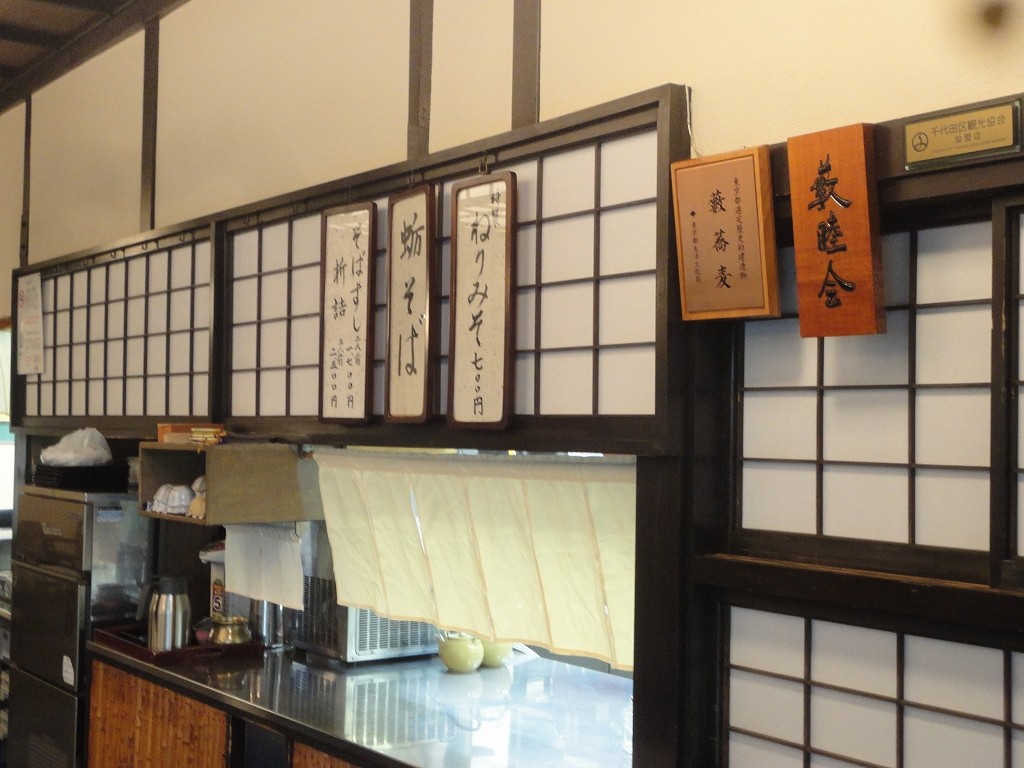 千代田区観光協会
加盟店
藪睦会
東京都選定歴史的建造物
藪蕎麦
ねりみそ七〇〇円
蛎そば
そばずし二人前一、七〇〇円
折詰二人前二、五〇〇円
5